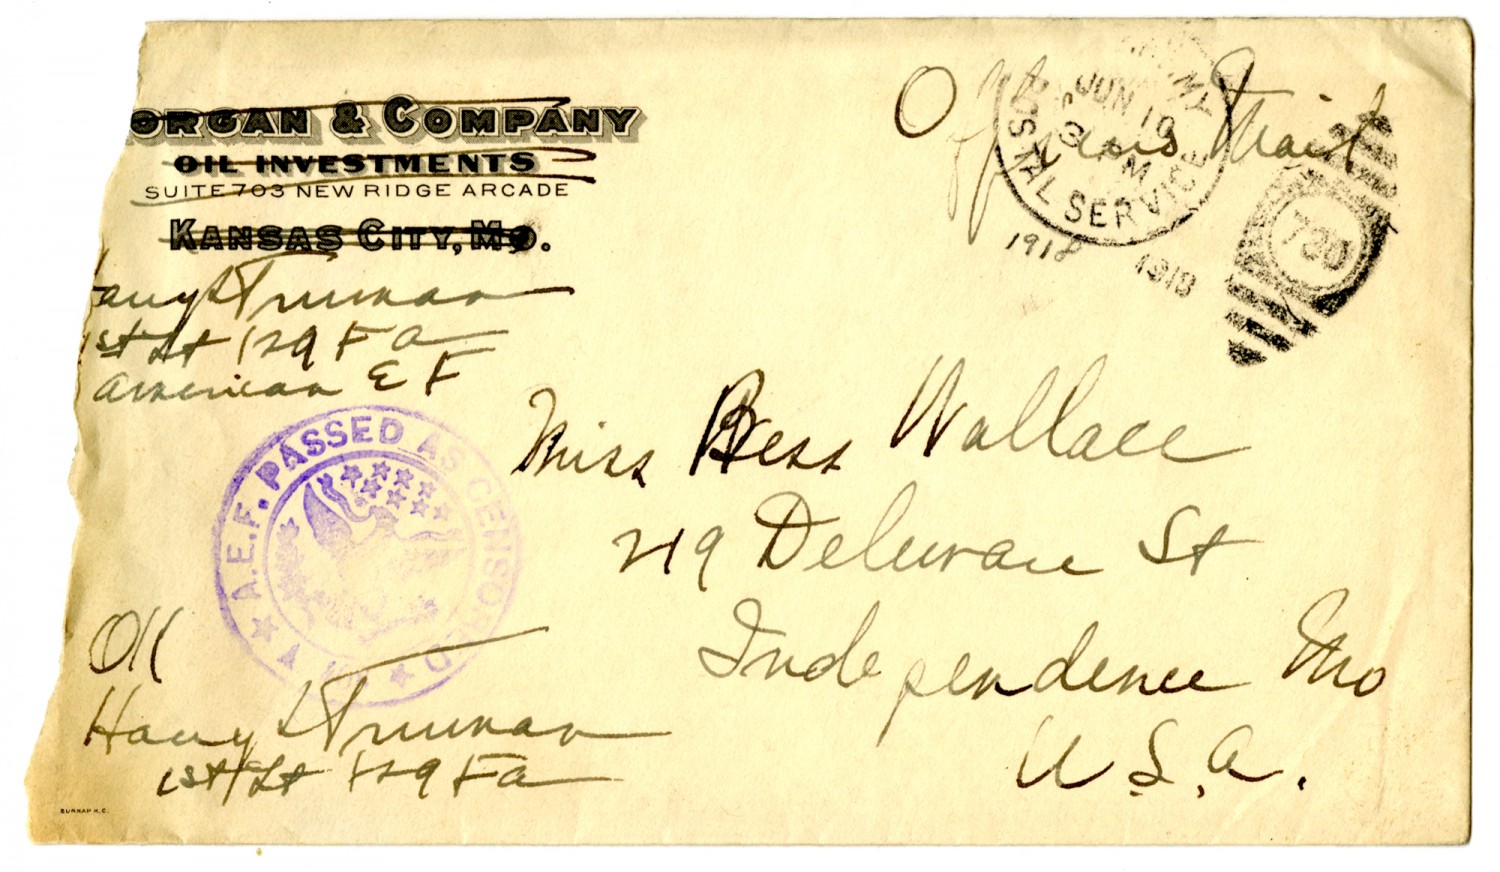 ORGAN & COMPANY
OIL INVESTMENTS
SUITE 703 NEW RIDGE ARCADE
KANSAS CITY, MO.
Harry S Truman
1st Lt 129 F A
American E F
Officers Mail
POSTAL SERVICE
JUN 19
AM
1918
1918
730
A.E.F. PASSED AS CENSORED
Miss Bess Wallace
219 Delaware St
Independence Mo
U.S.A.
OK
Harry S Truman
1st Lt 129 F A